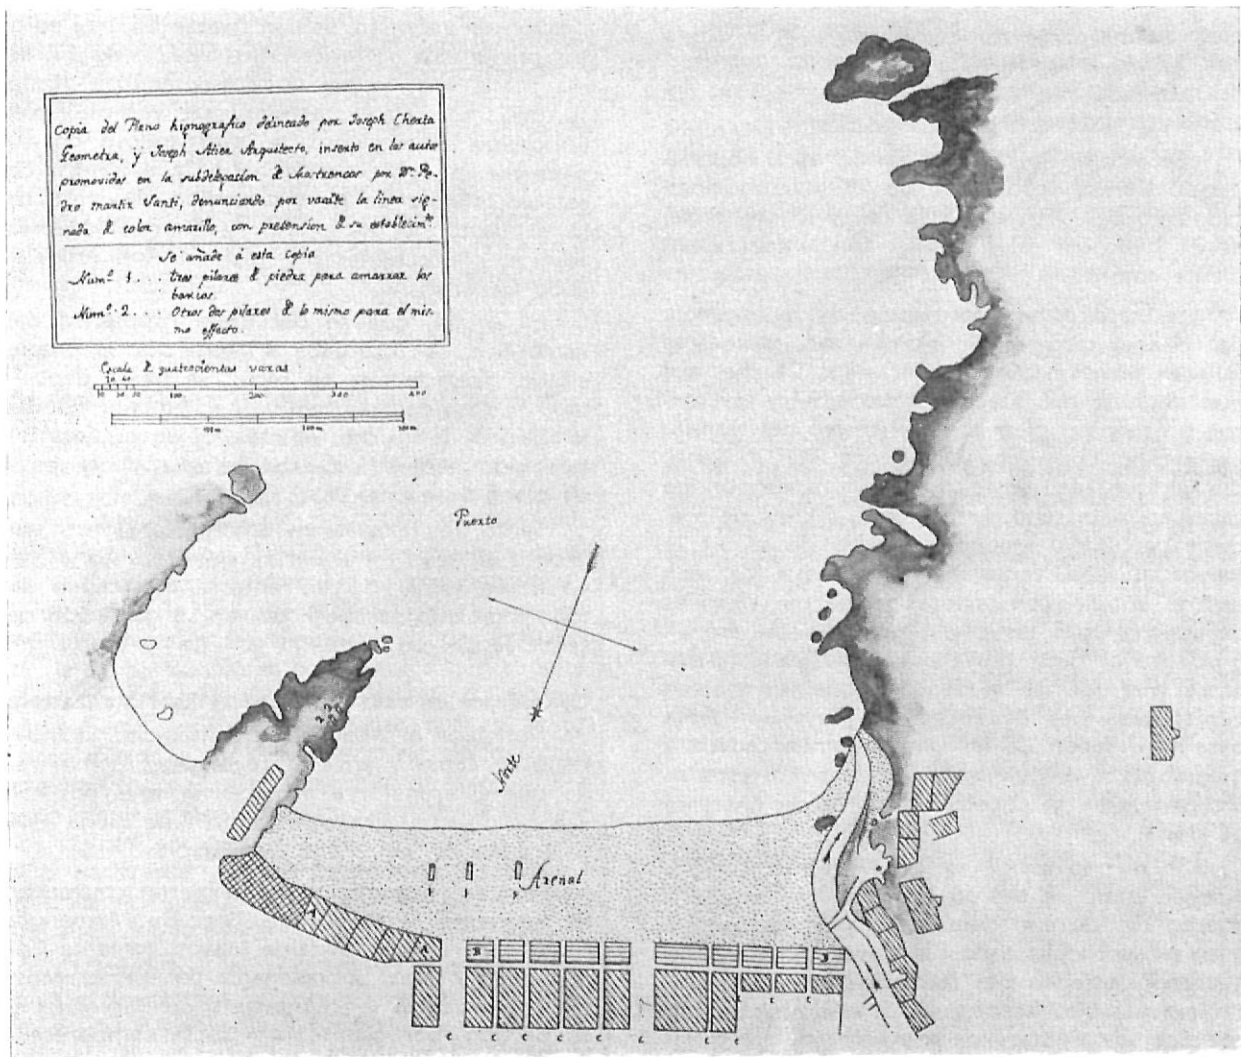 Copia del Plano hignografico delineado por Joseph Chexta
Geometra, y Joseph Alier Arquitecto, inserto en los autos
promovidos en la subdelegacion de Mostrencos por Dn. Pe-
dro martir Santi, denunciando por vacãte la linea sig-
nada de color amarillo, con pretension de su establecimto.
Se añade á esta copia
Numo. 1 . . . tres pilares de piedra para amarrar los
barcos.
Numo. 2 . . . Otros dos pilares de lo mismo para el mis-
mo effecto.
Escala de quatrocientas varas
100 200 300 400
Puerto
Norte
Arenal
1 1 1
A
A B B
C C C
C C C C C C C C